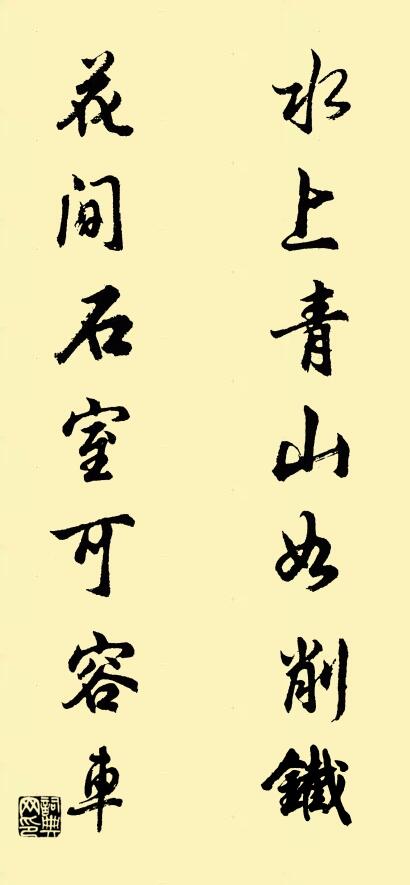 水上青山如削鐵
花間石室可容車
詞典網印